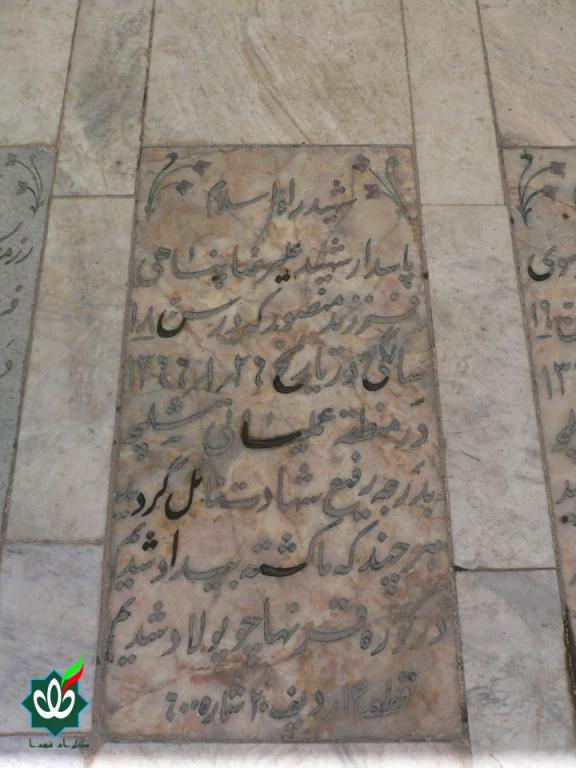 شهید راه اسلام
پاسدار شهید علیرضا پناهی
فرزند منصور که در سن ۱۸
سالگی در تاریخ ۱۳۶۶/۱/۲۶
در منطقه عملیاتی شلمچه
بدرجه رفیع شهادت نائل گردید
هر چند که ما کشته بیداد شدیم
در کوره قرنها چو پولاد شدیم
قطعه ۱۴ ردیف ۲۰ شماره ۶۰۰
سوی
۱۹